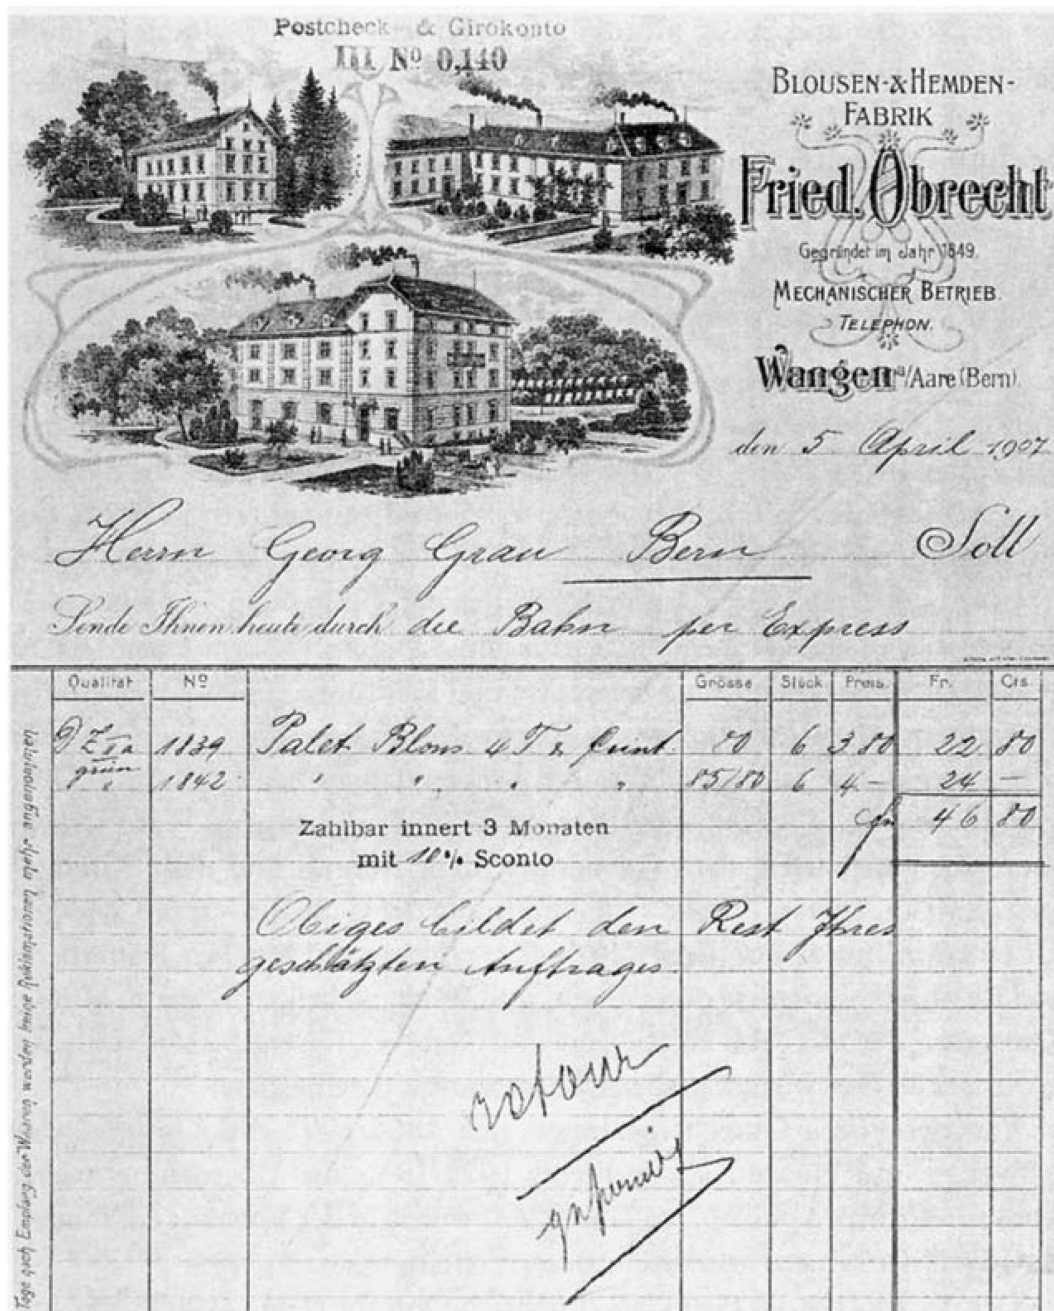 Postcheck- & Girokonto
III Nº 0,140
BLOUSEN-&HEMDEN-
FABRIK
Fried. Obrecht
Gegründet im Jahr 1849.
MECHANISCHER BETRIEB.
TELEPHON.
Wangen a/Aare (Bern)
den 5 April 1907
Herrn Georg Grau Bern Soll
Sende Ihnen heute durch die Bahn per Express
Qualität Nº Grösse Stück Preis. Fr. Cts.
1839 Palet. Blous 4 T. 80 6 3.80 22. 80
grün 1842 " " " " 85/80 6 4.— 24 —
46 80
Zahlbar innert 3 Monaten
mit 10% Sconto
Obiges bildet den Rest Ihres
geschätzten Auftrages.
retour
Tage nach Empfang der Waaren werden keine Reklamationen mehr angenommen